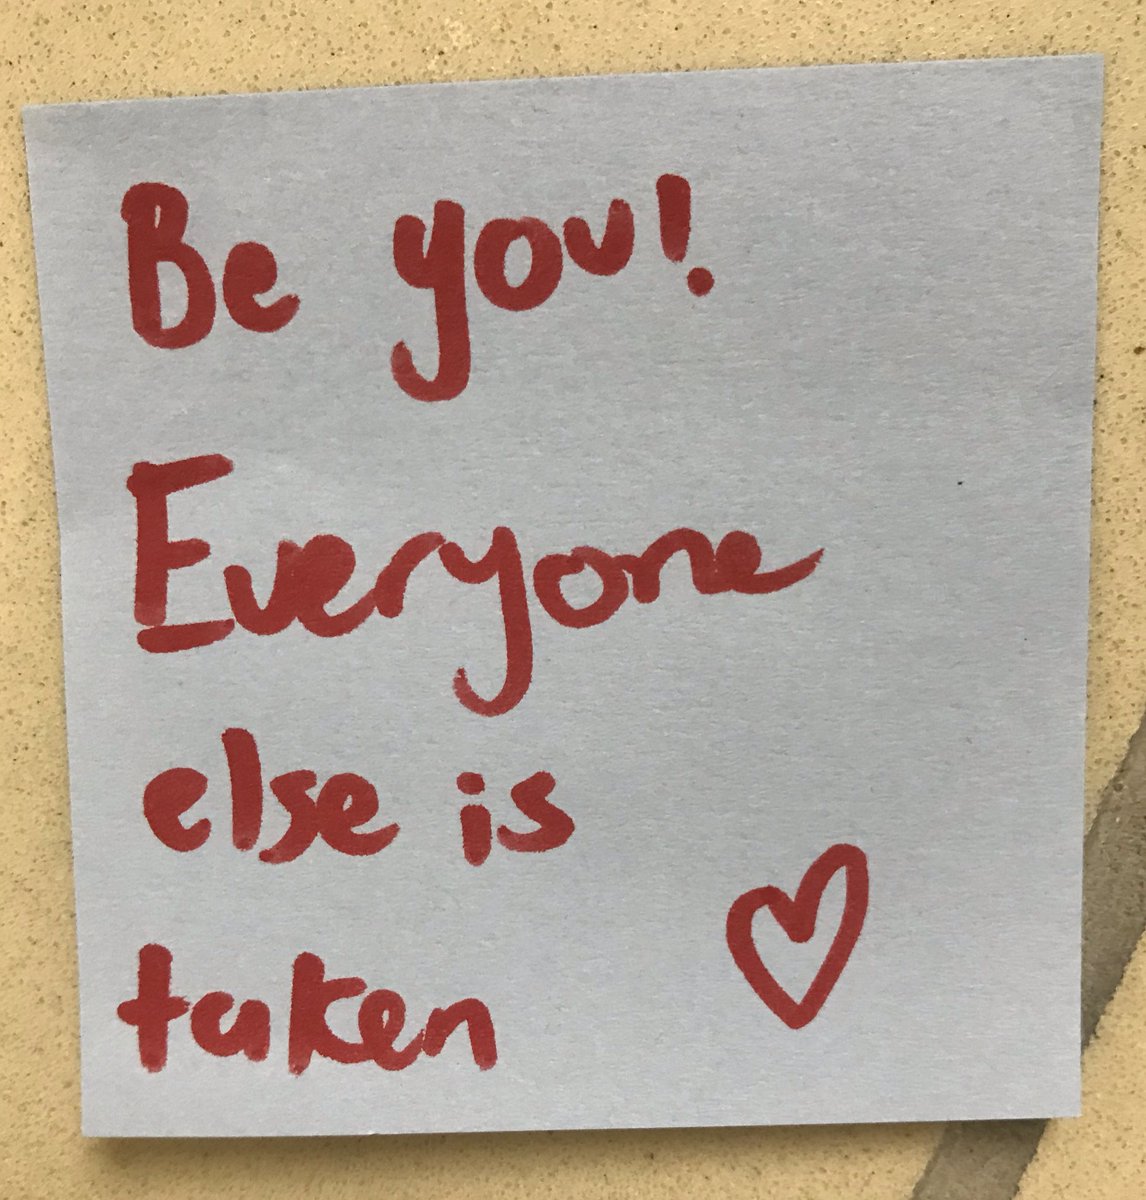 Be you!
Everyone
else is
taken